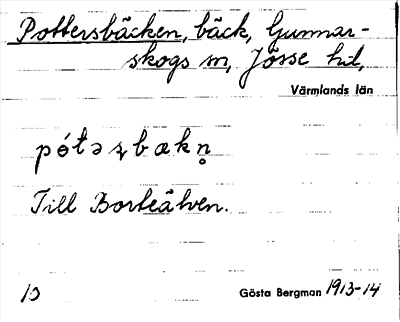 Pottersbäcken, bäck, Gunnar-
skogs sn, Jösse hd,
Värmlands län
pótəʂbækn̥
Till Borteälven.
10
Gösta Bergman 1913-14